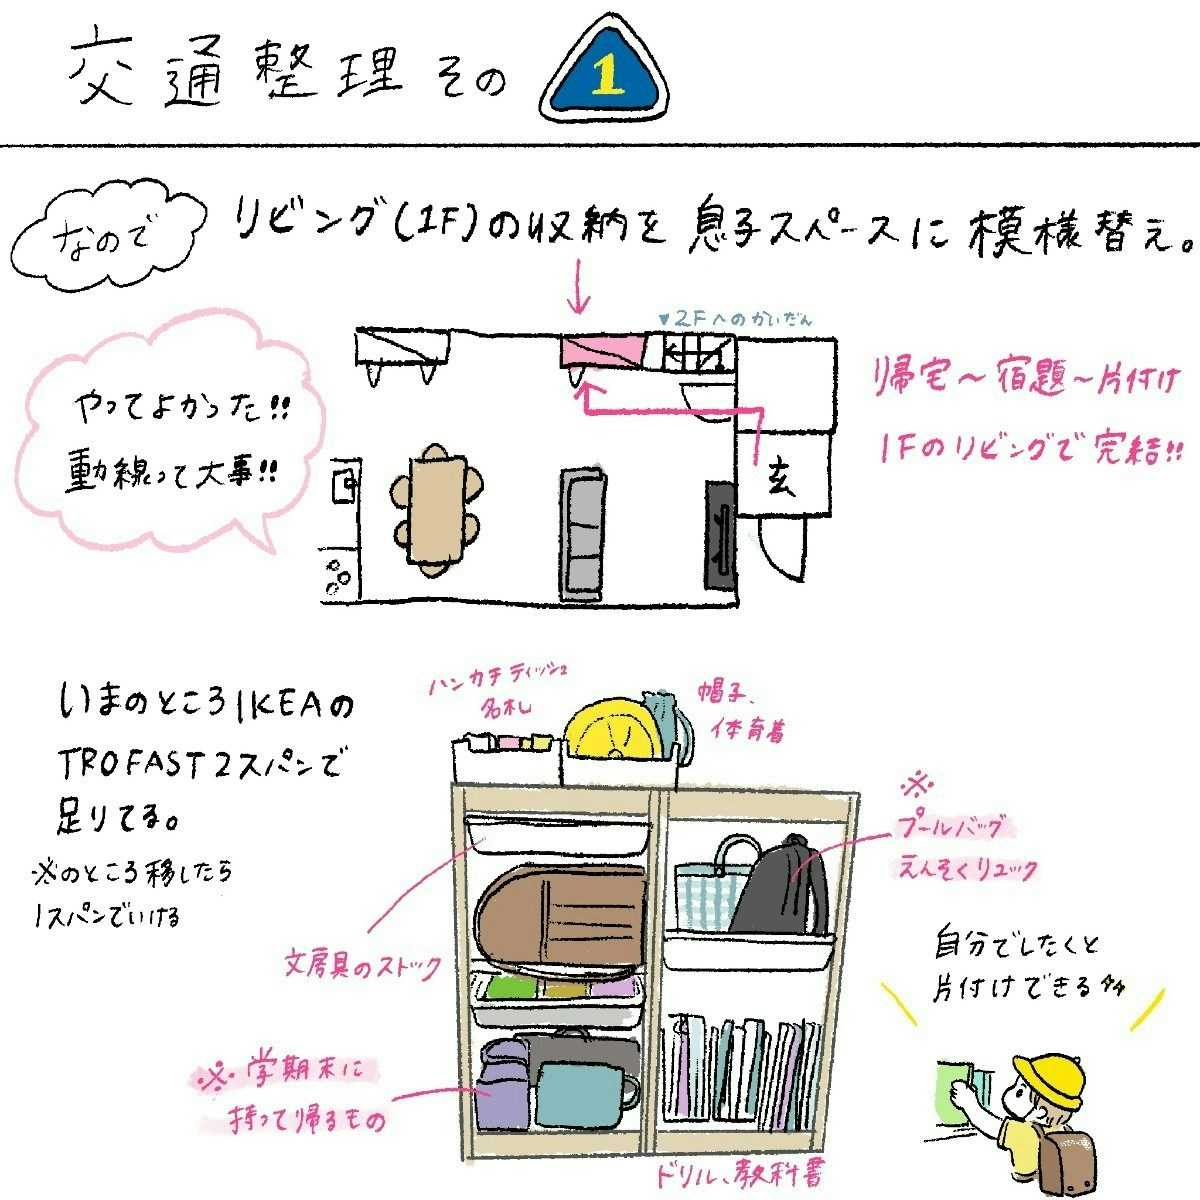 交通整理その1
なので
リビング(1F)の収納を息子スペースに模様替え。
▼2Fへのかいだん
やってよかった!!
動線って大事!!
帰宅〜宿題〜片付け
1Fのリビングで完結!!
玄
いまのところIKEAの
TROFAST2スパンで
足りてる。
※のところ移したら
1スパンでいける
ハンカチティッシュ
名札
帽子、
体育着
※
プールバッグ
えんそくリュック
文房具のストック
自分でしたくと
片付けできる
※学期末に
持って帰るもの
ドリル、教科書